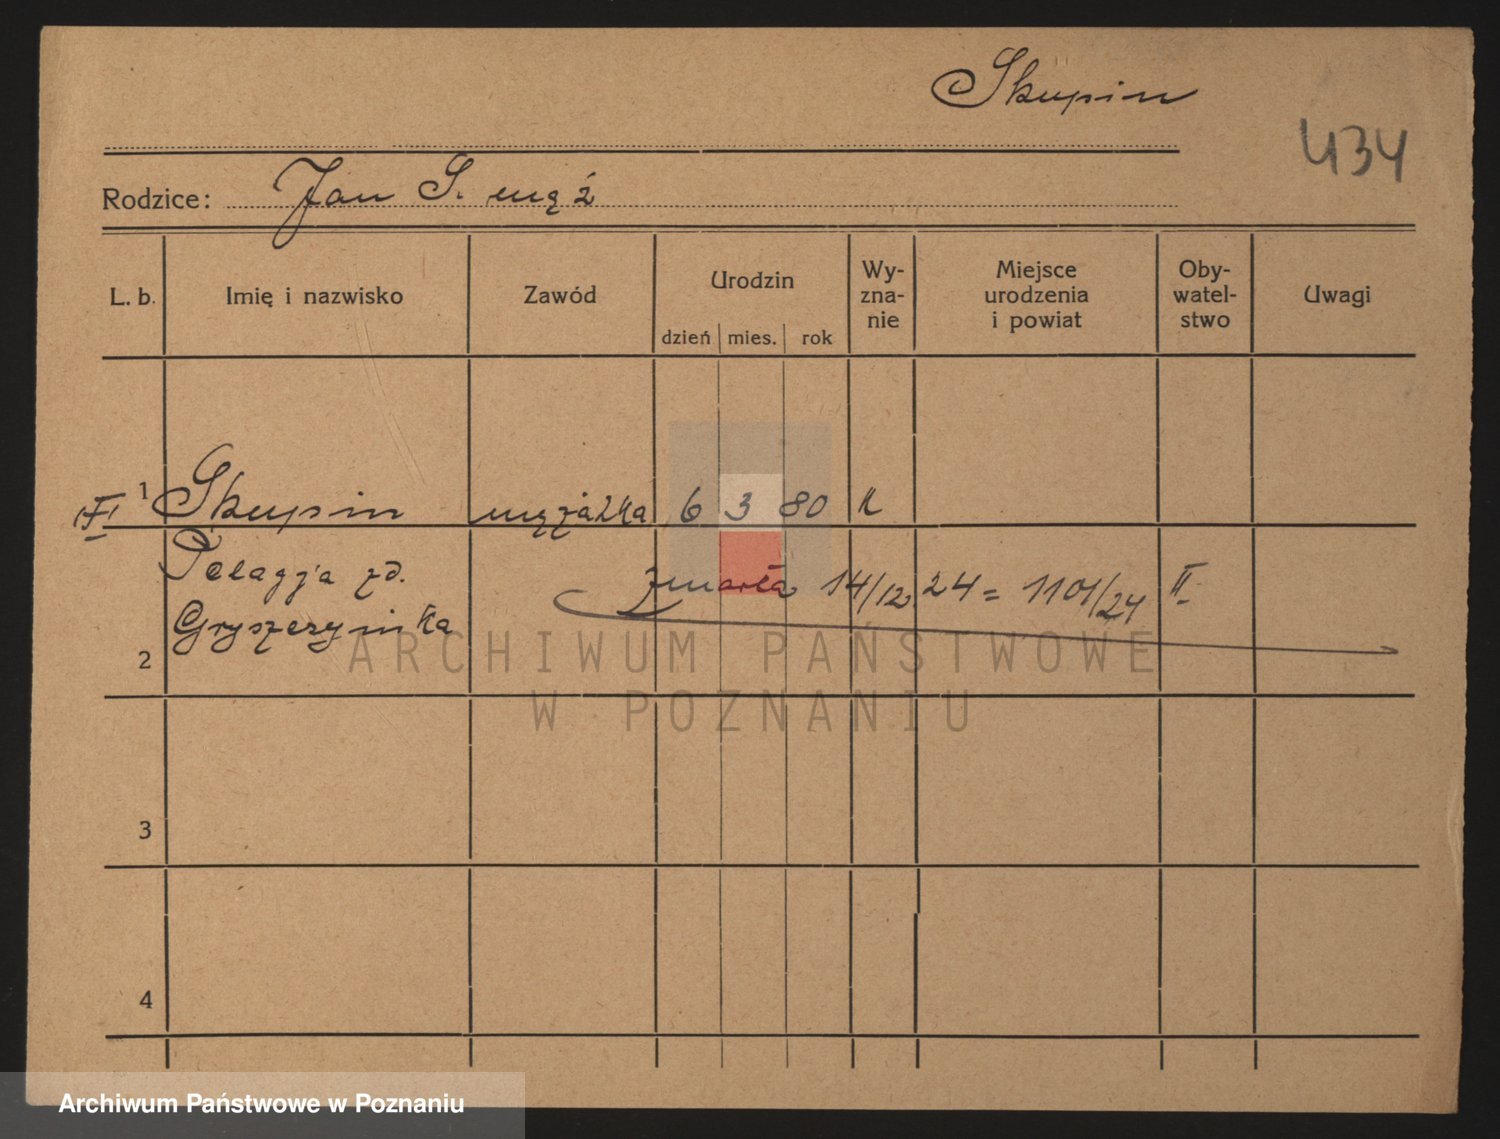 Skupin
434
Rodzice: Jan S. mąż
L. b. Imię i nazwisko Zawód Urodzin Wy-zna-nie Miejsce urodzenia i powiat Oby-watel-stwo Uwagi
dzień mies. rok
1 Skupin mężatka 6 3 80 k
Pelagja zd.
zmarła 14/12 24 = 1101/24 II
2
ARCHIWUM PAŃSTWOWE
W POZNANIU
3
4
Archiwum Państwowe w Poznaniu